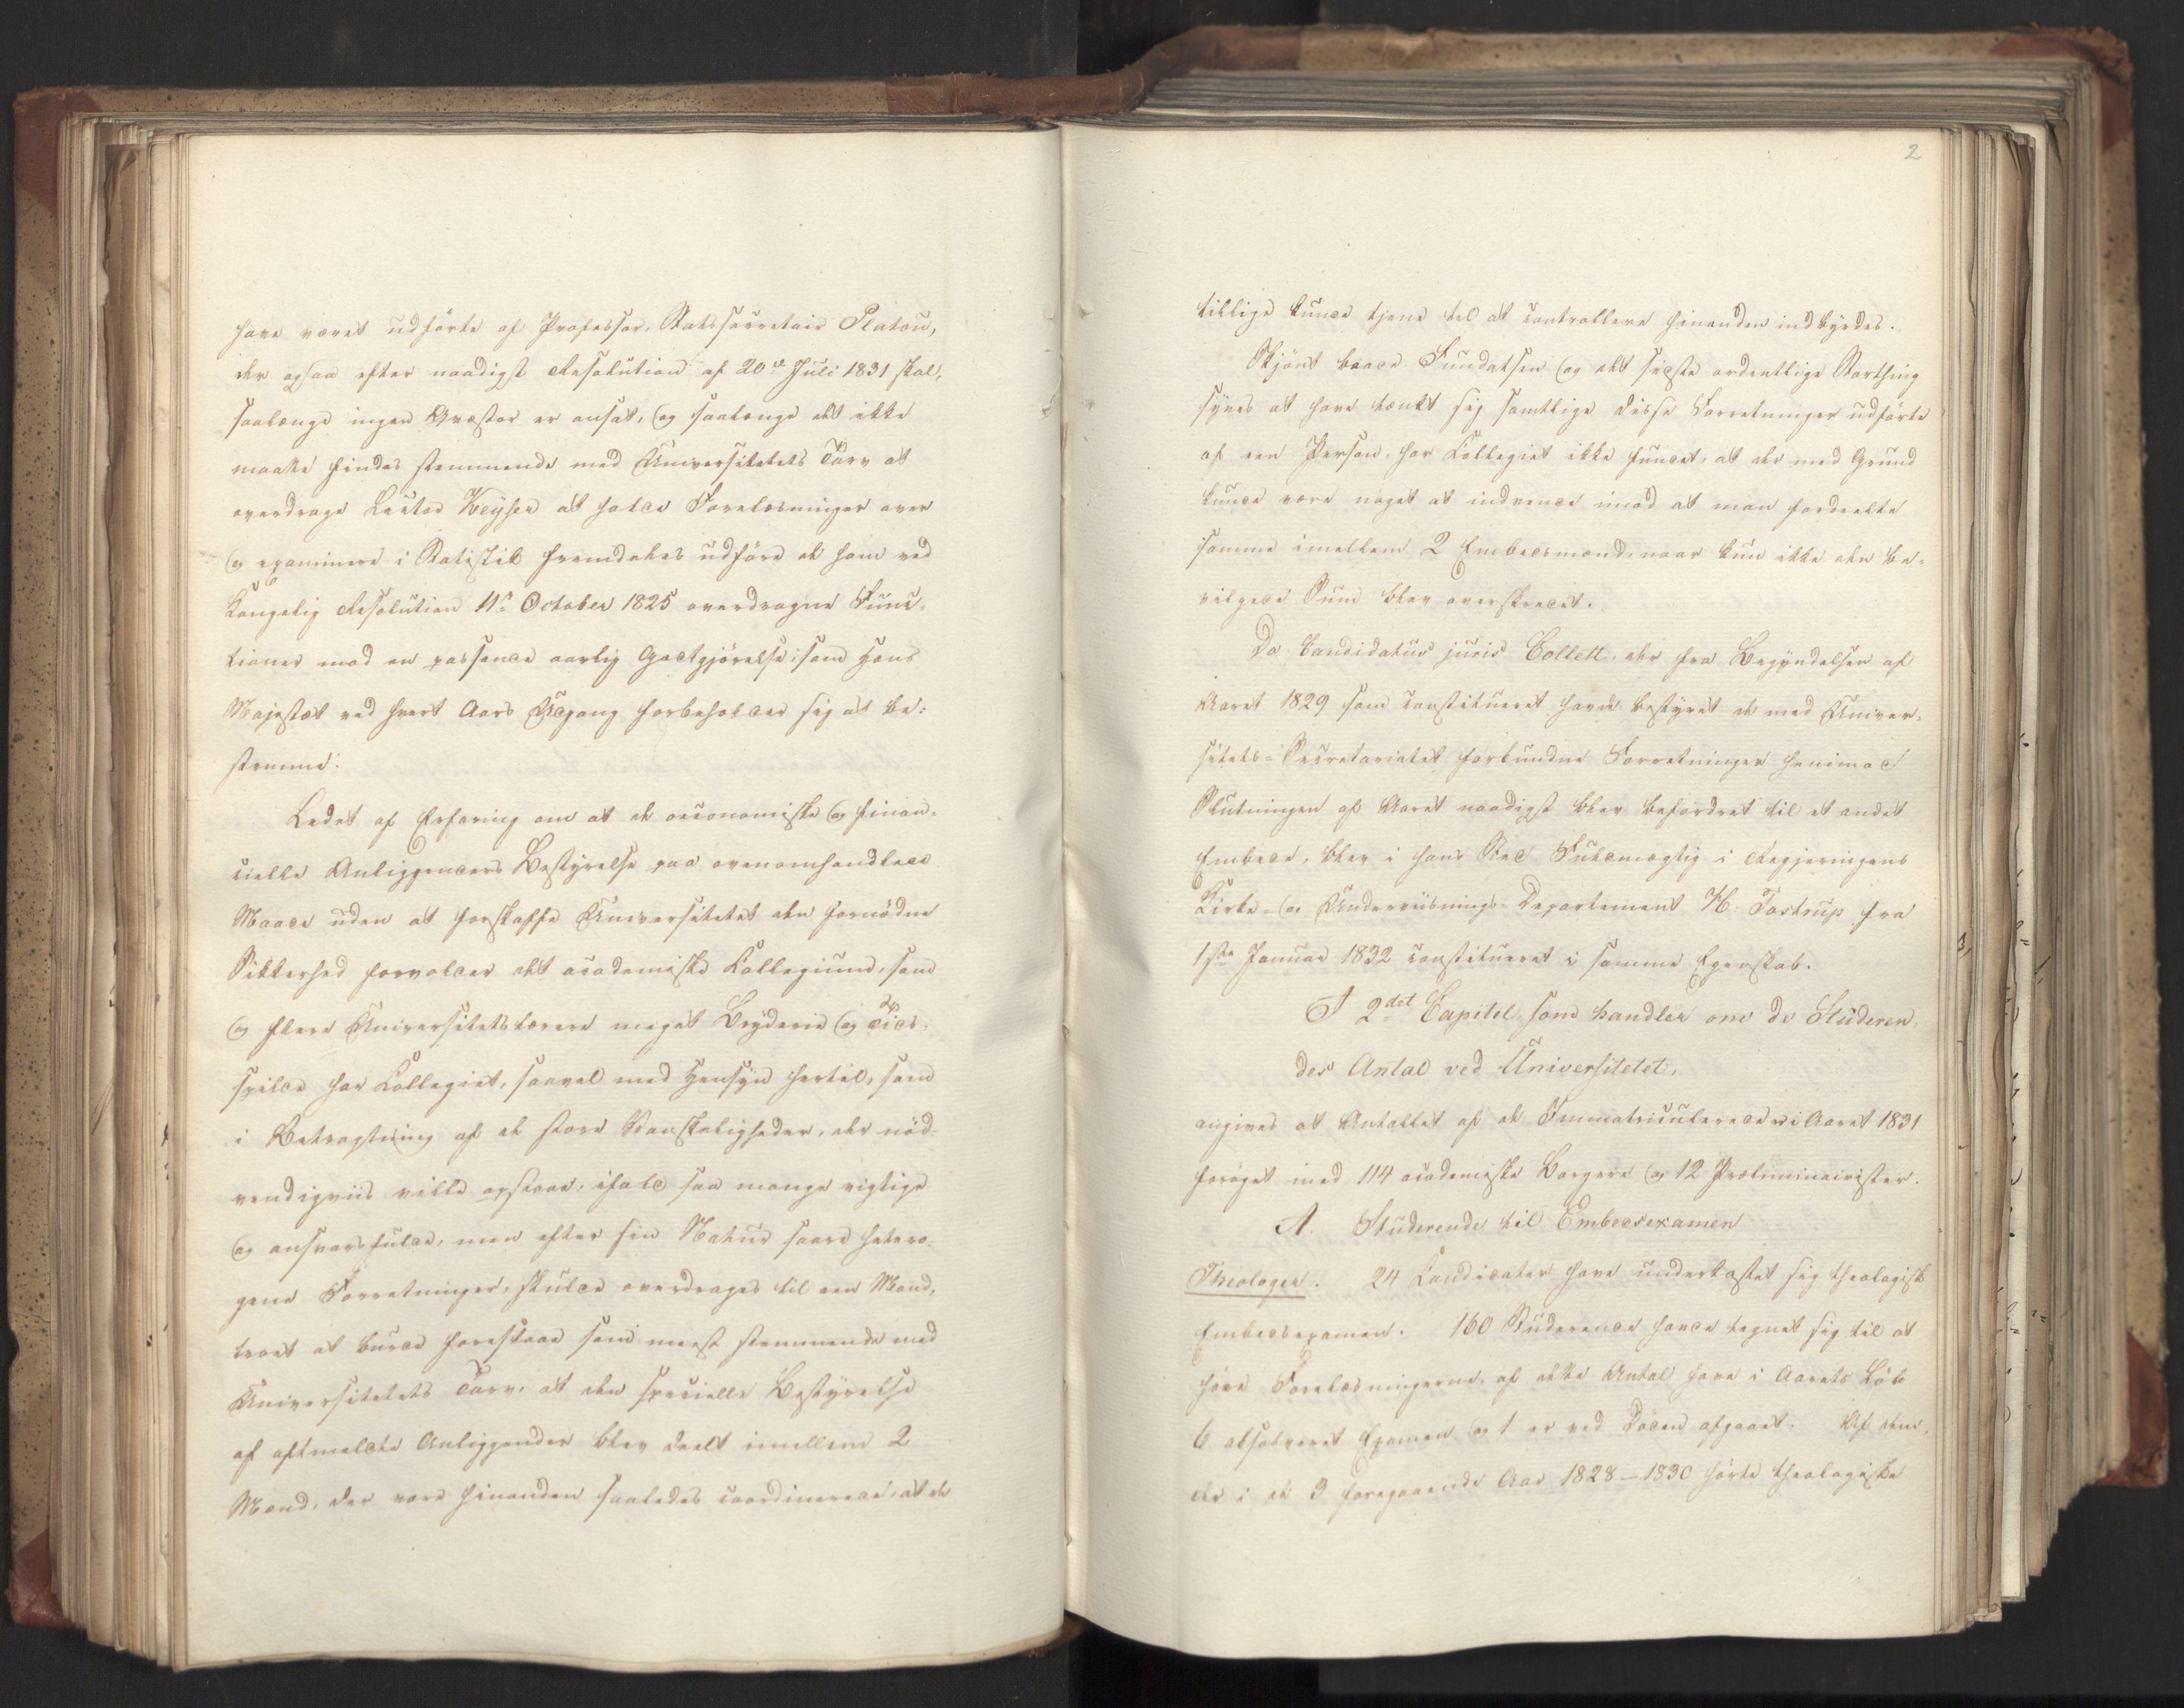 have været udførte af Professor, Statssecretair Platou,
der ogsaa efter naadigst Resolution af 20de Juli 1831 skal,
saalænge ingen Qvæstor er ansat, og saalænge det ikke
maatte findes stemmende med Universitetets Tarv at
overdrage Lector Keyser at holde Forelæsninger over
og examinere i Statistik fremdeles udføre de ham ved
Kongelig Resolution 11te October 1825 overdragne Func-
tioner mod en passende aarlig Godtgjørelse, som Hans
Majestæt ved hvert Aars Udgang forbeholder sig at be-
stemme.
Ledet af Erfaring om at de oeconomiske og finan-
cielle Anliggenders Bestyrelse paa ovenomhandlede
Maade uden at forskaffe Universitetet den fornødne
Sikkerhed forvolder det academiske Collegium, som
og flere Universitetslærere meget Bryderie og Tids-
spilde har Collegiet, saavel med Hensyn hertil, som
i Betragtning af de store Vanskeligheder, der nød-
vendigviis ville opstaae, ifald saa mange vigtige
og ansvarsfulde, men efter sin Natur saare hetero-
gene Forretninger, skulde overdrages til een Mand,
troet at burde foreslaae som meest stemmende med
Universitetets Tarv, at den specielle Bestyrelse
af oftmeldte Anliggender blev deelt imellem 2
Mænd, der vare hinanden saaledes coordinerede, at de
2
tillige kunde tjene til at controllere hinanden indbyrdes.
Skjønt baade Fundatsen og det sidste ordentlige Storthing
synes at have tænkt sig samtlige disse Forretninger udførte
af een Person, har Collegiet ikke fundet, at der med Grund
kunde være noget at indvende imod at man fordeelte
samme imellem 2 Embedsmænd, naar kun ikke den be-
vilgede Sum blev overskredet.
Da Candidatus juris Collett, der fra Begyndelsen af
Aaret 1829 som constitueret havde bestyret de med Univer-
sitets-Secretariatet forbundne Forretninger henimod
Slutningen af Aaret naadigst blev befordret til et andet
Embede, blev i hans Sted Fuldmægtig i Regjeringens
Kirke- og Underviisnings-Departement H. Tostrup fra
1ste Januar 1832 constitueret i samme Egenskab.
I 2det Capitel, som handler om de Studeren-
des Antal ved Universitetet,
angives at Antallet af de Immatriculerede er i Aaret 1831
forøget med 114 academiske Borgere og 12 Præliminairister.
A. Studerende til Embedsexamen
Theologer. 24 Candidater have underkastet sig theologisk
Embedsexamen. 160 Studerende havde tegnet sig til at
høre Forelæsningerne, af dette Antal have i Aarets Løb
6 absolveret Examen og 1 er ved Døden afgaaet. Af dem,
der i de 3 foregaaende Aar 1828-1830 hørte theologiske